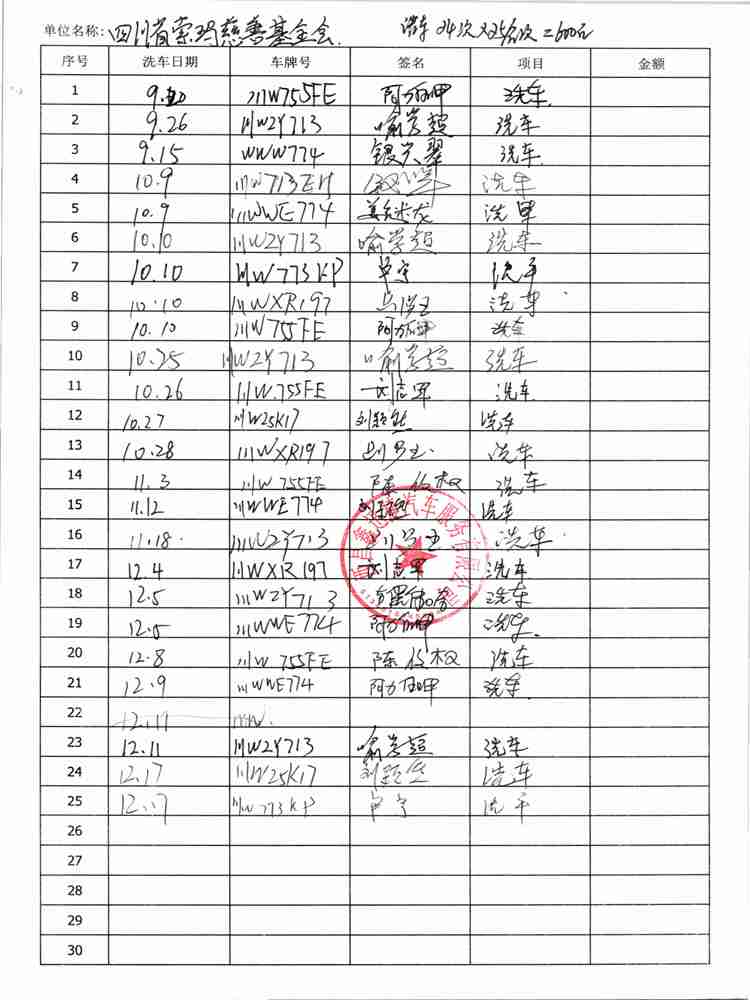 单位名称:四川省索玛慈善基金会. 洗车 24次×25元/次=600元
序号 洗车日期 车牌号 签名 项目 金额
1 9. 川W755FE 阿力 洗车
2 9.26 川W2Y713 喻学超 洗车
3 9.15 洗车
4 10.9 川W713EH 洗车
5 10.9 川WWE774 洗车
6 10.10 川W2Y713 喻学超 洗车
7 10.10 川W773KP 卓宁 洗车
8 10.10 川WXR197 洗车
9 10.10 川W755FE 阿力 洗车
10 10.25 川W2Y713 喻学超 洗车
11 10.26 川W.755FE 洗车
12 10.27 川W25K17 洗车
13 10.28 川WXR197 洗车
14 11.3 川W755FE 陈 权 洗车
15 11.12 川WWE774 洗车
16 11.18 川W2Y713 洗车
17 12.4 川WXR197 洗车
18 12.5 川W2Y713 洗车
19 12.5 川WWE774 阿力 洗车
20 12.8 川W755FE 陈 权 洗车
21 12.9 川WWE774 阿力 洗车
22 12.11 川W.
23 12.11 川W2Y713 喻学超 洗车
24 12.17 川W25K17 洗车
25 12.17 川W773KP 卓宁 洗车
26
27
28
29
30
汽车服务有限公司